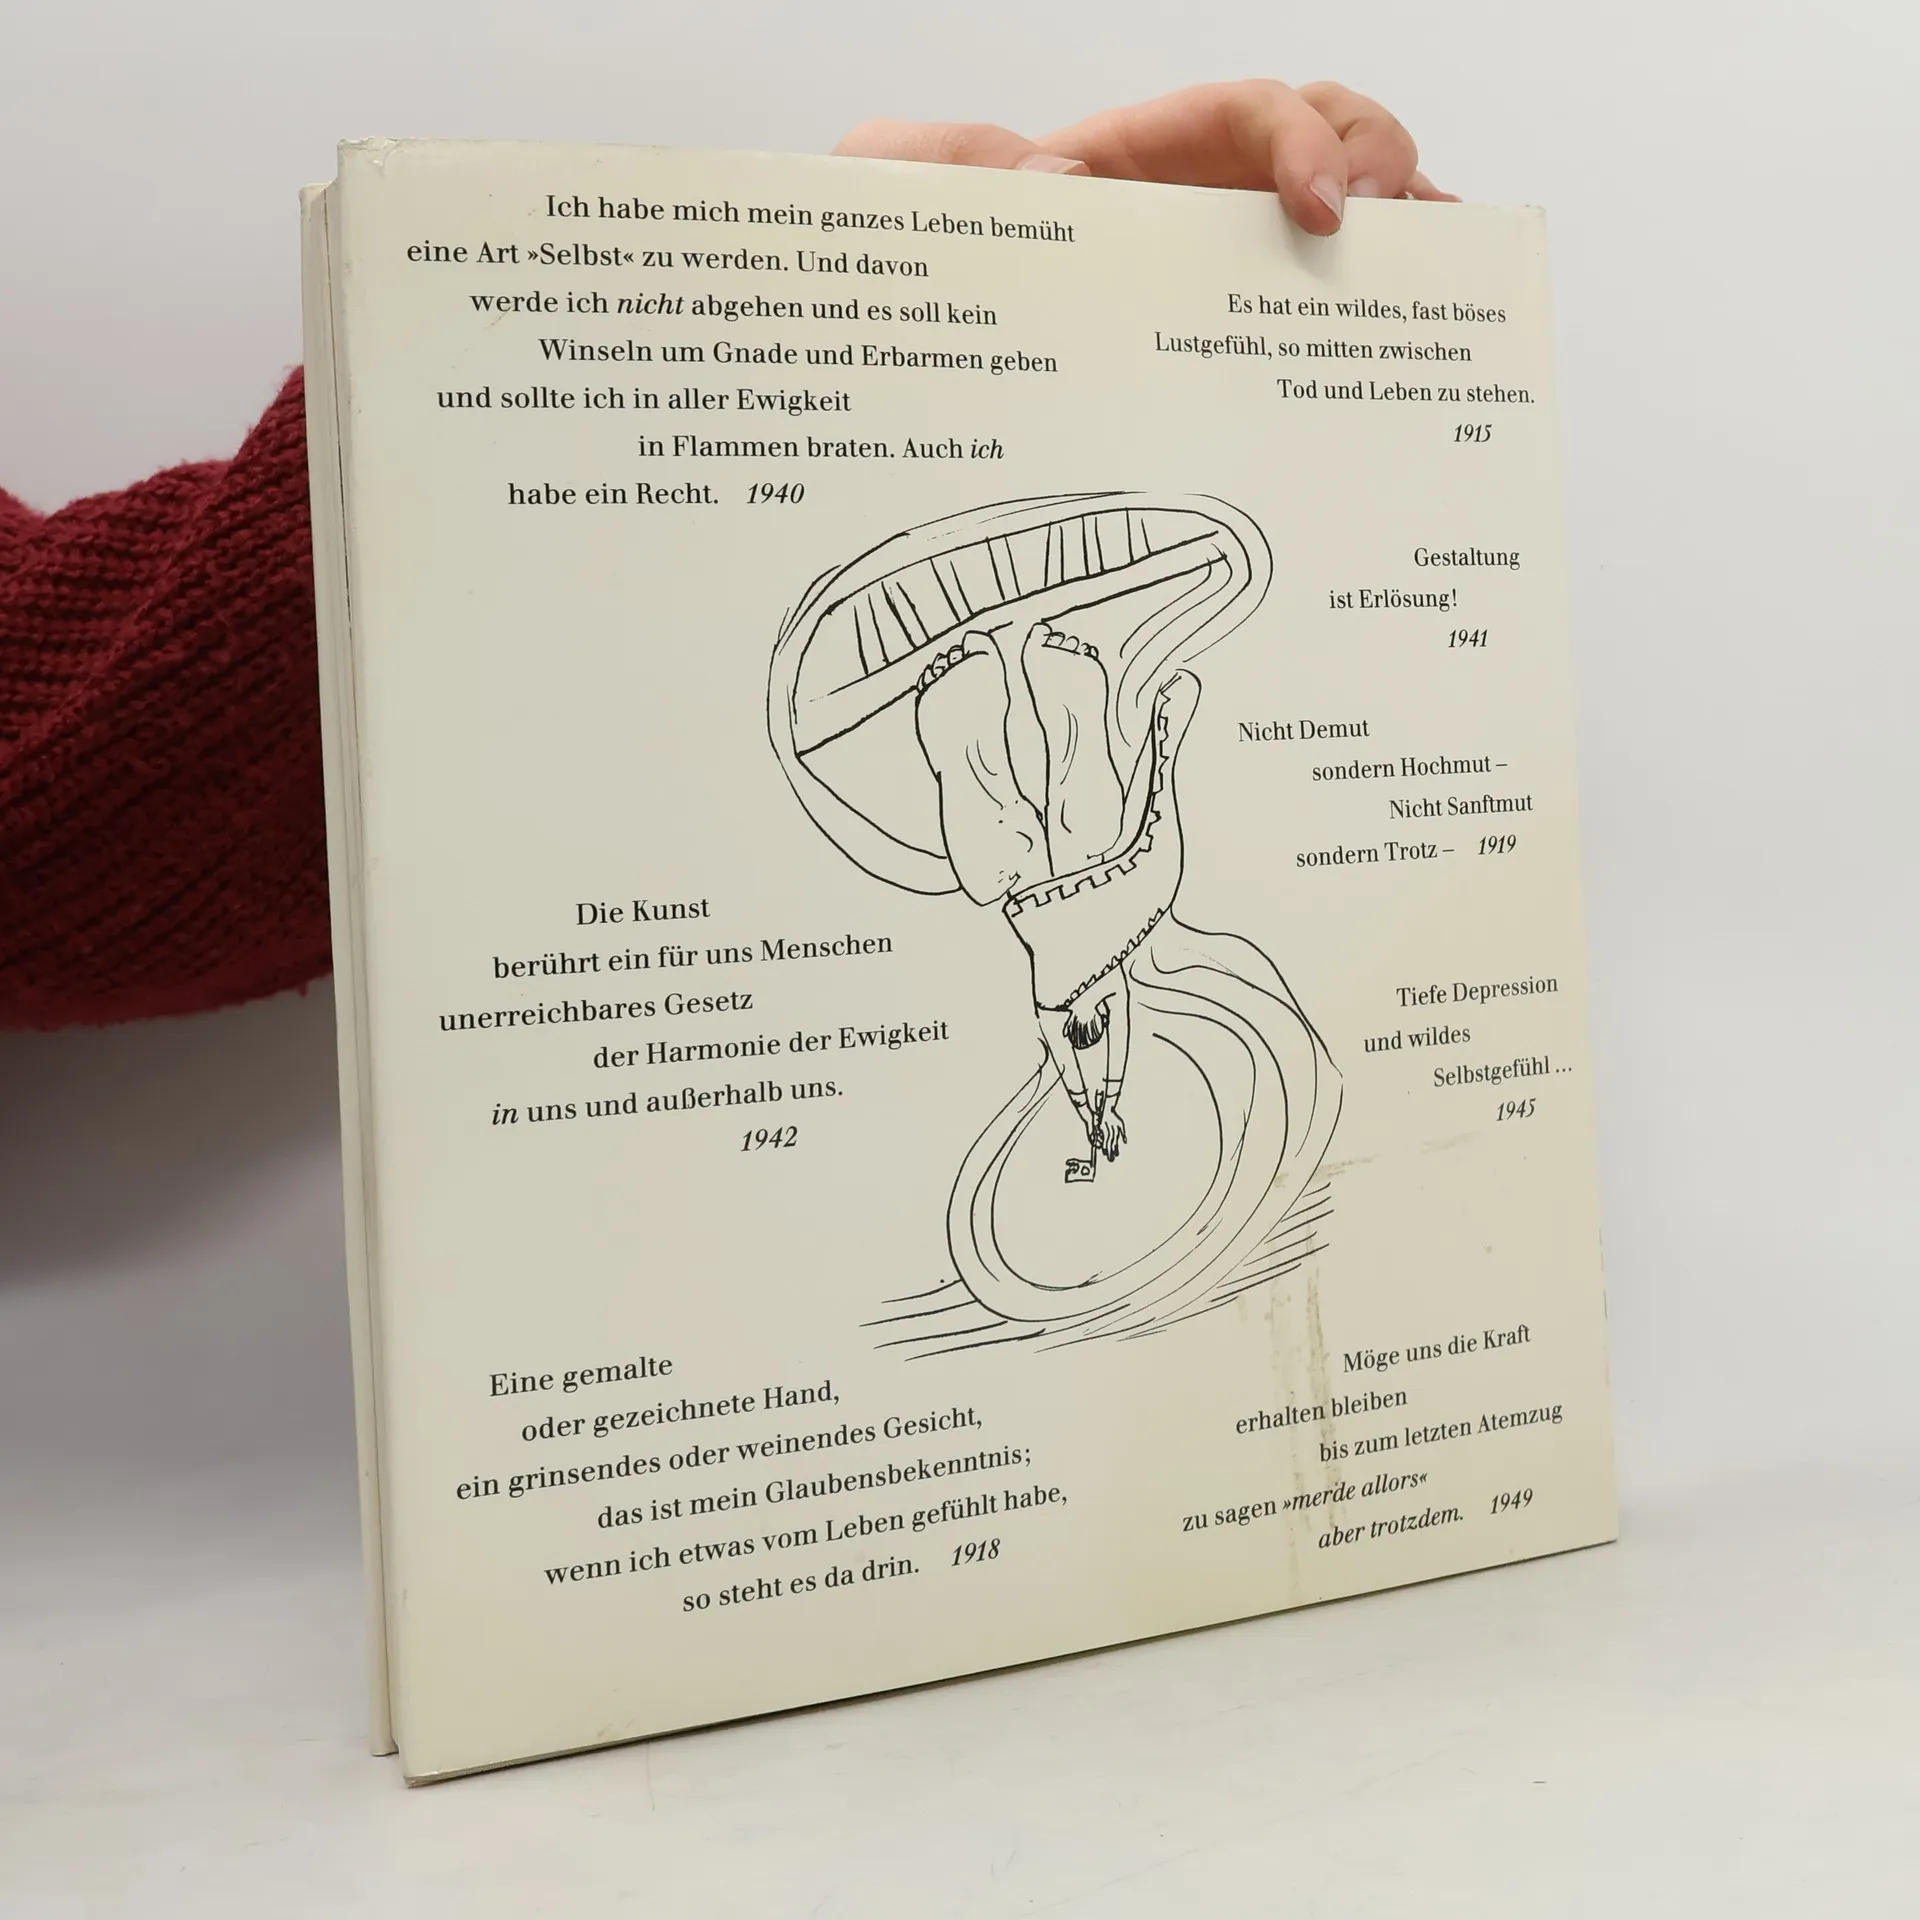 Ich habe mich mein ganzes Leben bemüht
eine Art »Selbst« zu werden. Und davon
werde ich nicht abgehen und es soll kein
Winseln um Gnade und Erbarmen geben
und sollte ich in aller Ewigkeit
in Flammen braten. Auch ich
habe ein Recht. 1940
Es hat ein wildes, fast böses
Lustgefühl, so mitten zwischen
Tod und Leben zu stehen.
1915
Gestaltung
ist Erlösung!
1941
Nicht Demut
sondern Hochmut –
Nicht Sanftmut
sondern Trotz – 1919
Die Kunst
berührt ein für uns Menschen
unerreichbares Gesetz
der Harmonie der Ewigkeit
in uns und außerhalb uns.
1942
Tiefe Depression
und wildes
Selbstgefühl ...
1945
Eine gemalte
oder gezeichnete Hand,
ein grinsendes oder weinendes Gesicht,
das ist mein Glaubensbekenntnis;
wenn ich etwas vom Leben gefühlt habe,
so steht es da drin. 1918
Möge uns die Kraft
erhalten bleiben
bis zum letzten Atemzug
zu sagen »merde allors«
aber trotzdem. 1949